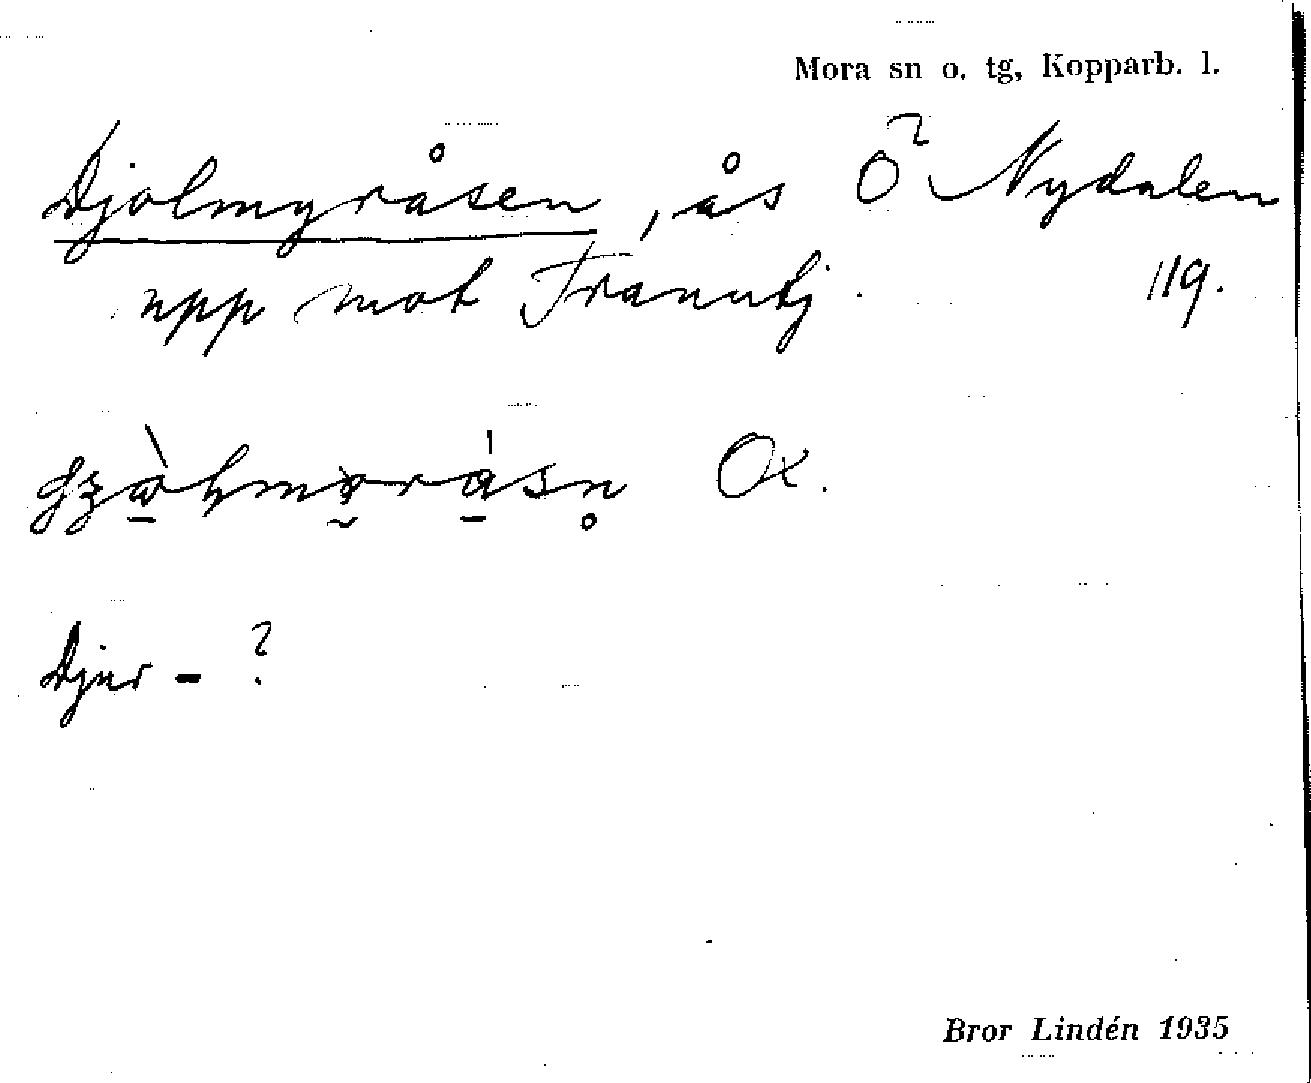 Mora sn o. tg, Kopparb. l.
Djolmyråsen, ås Ö Nydalen
upp mot Tranutj. 119.
Ox.
Djur - ?
Bror Lindén 1935